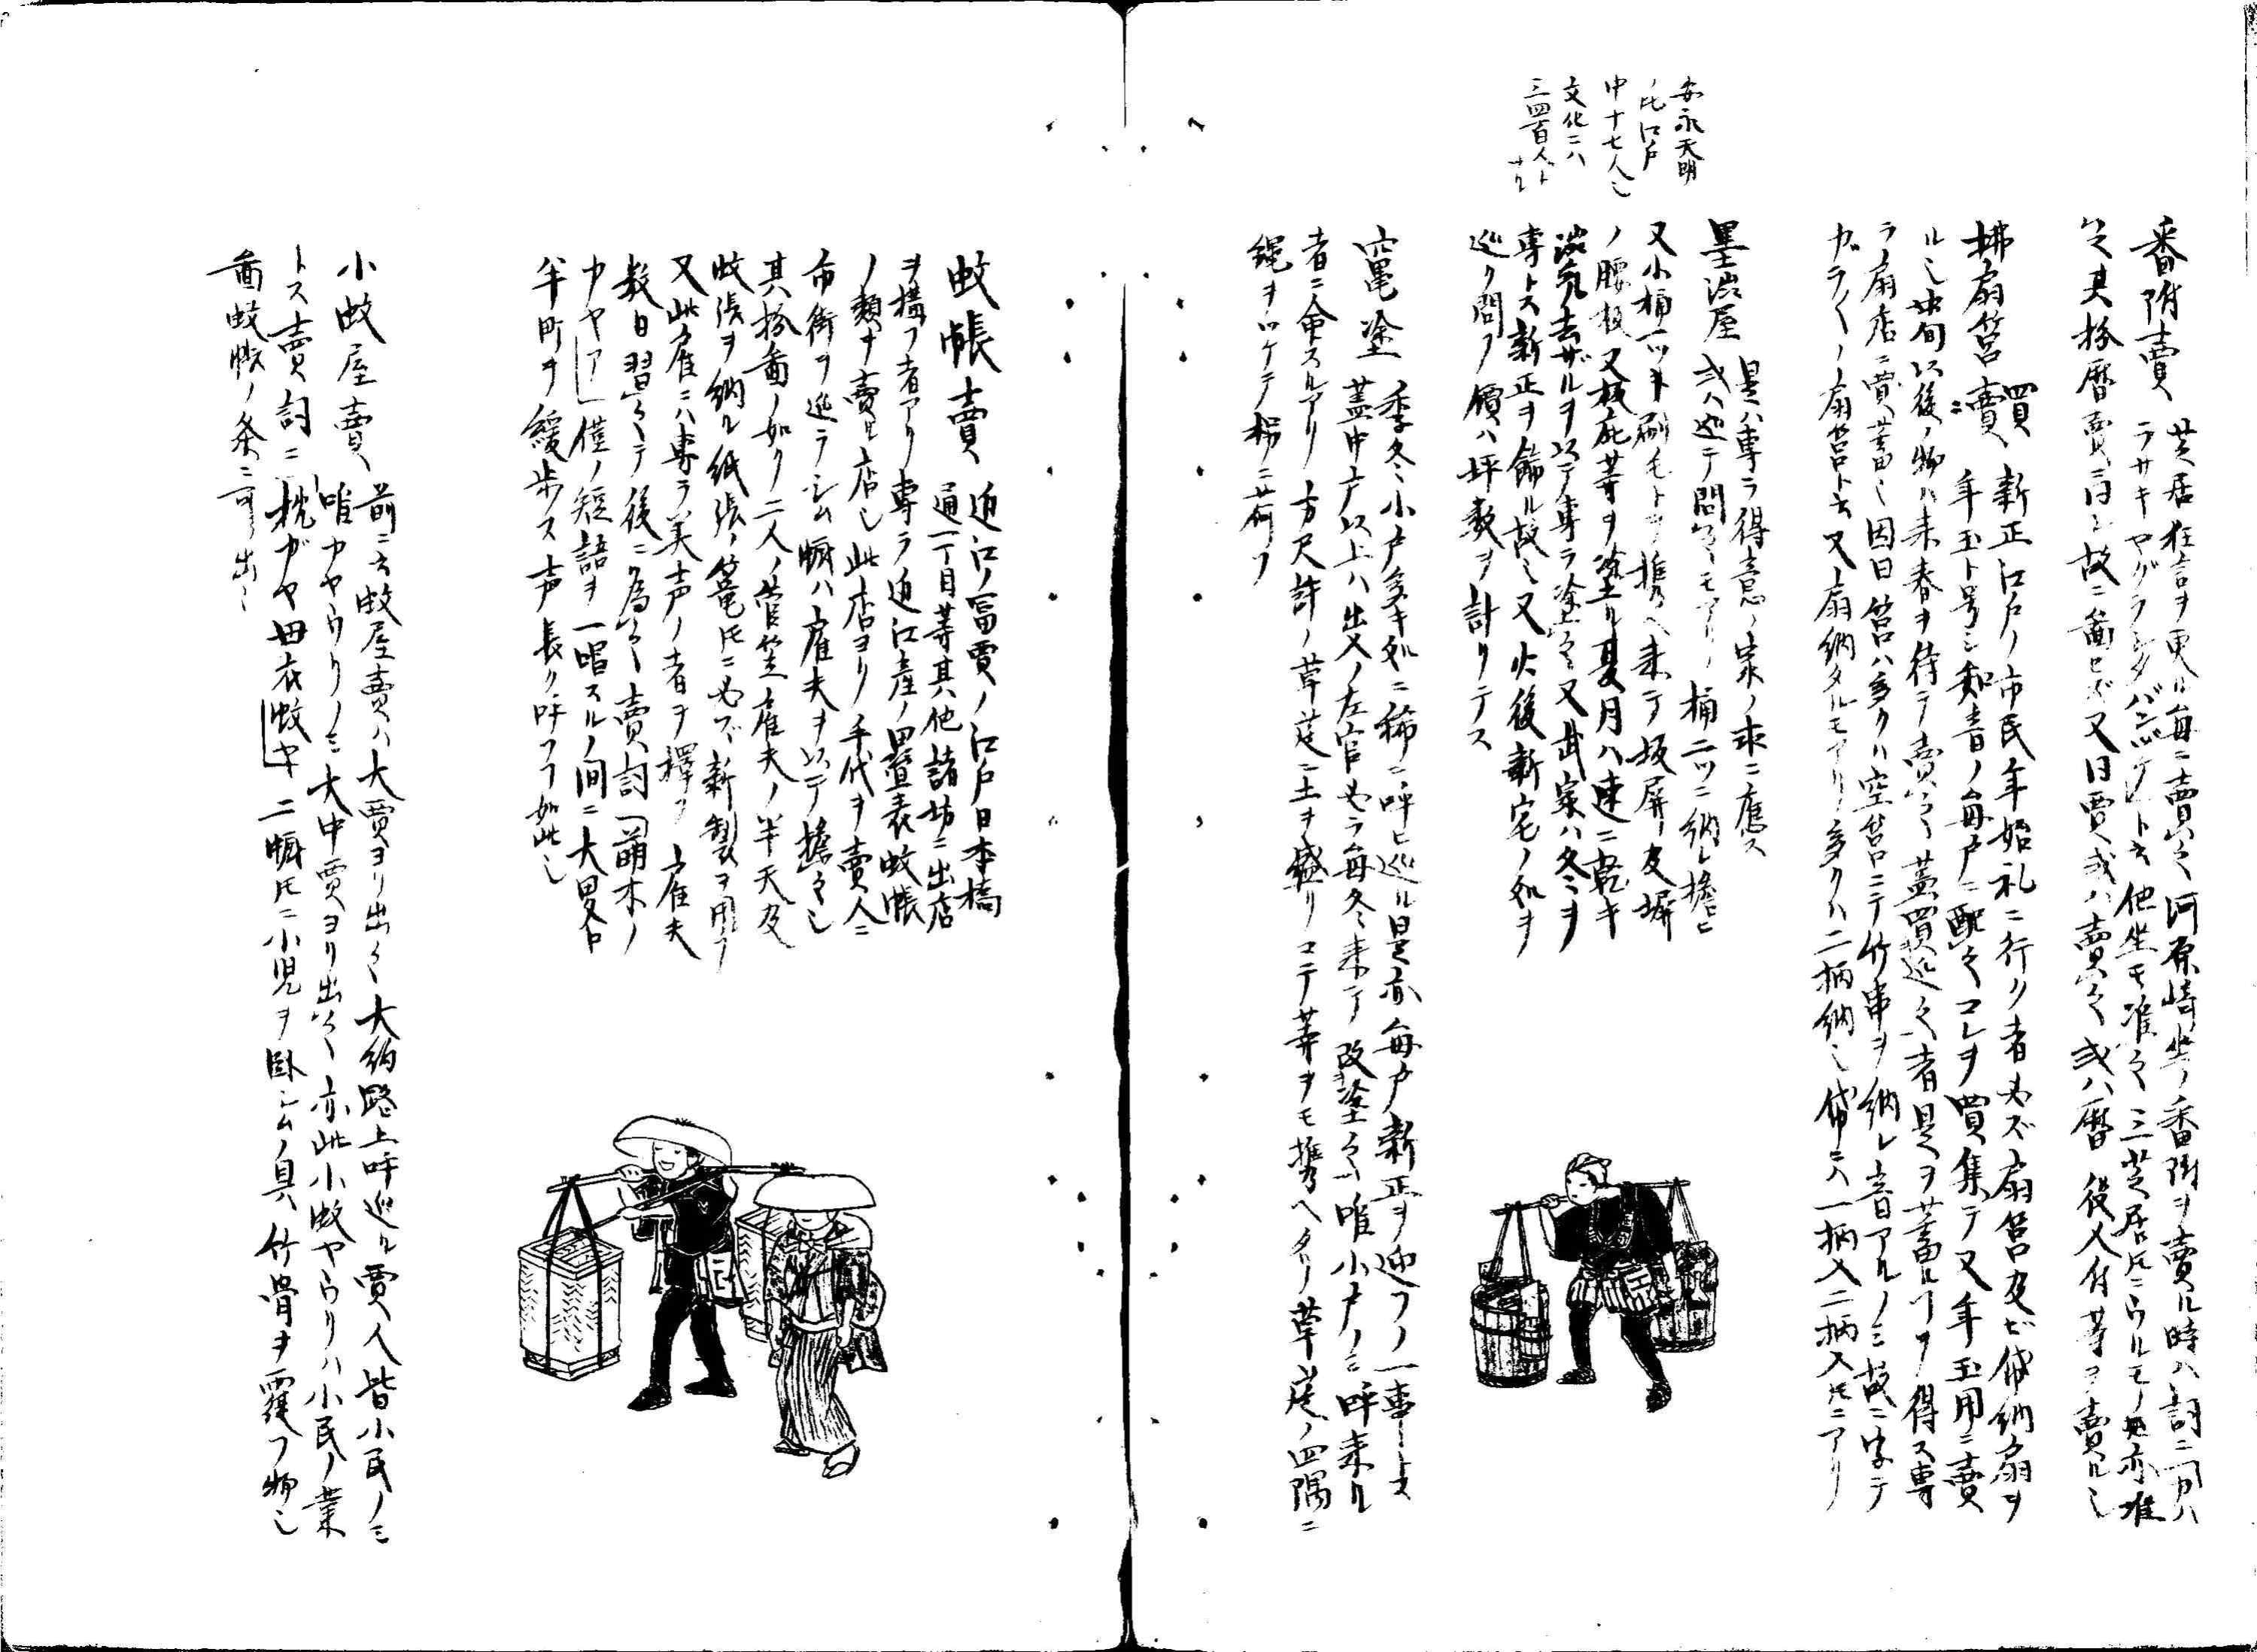 番附賣 芝居狂言ヲ更ル毎ニ賣之河原崎坐ノ番附ヲ賣ル時ハ詞ニ「カハ
ラサキヤグラシタバンヅケ」ト云他坐モ准之三芝居トモニウルモノ亦准
之其扮暦賣ニ同シ故ニ圖セズ又同賈或ハ賣之或ハ暦役人付等ヲ賣ル也
拂扇筥賣買 新正江戸ノ市民年始礼ニ行ク者必ズ扇筥及ビ帋納扇ヲ
年玉ト号シ知音ノ毎戸ニ配之コレヲ買集テ又年玉用ニ賣
ル也中旬以後ノ物ハ来春ヲ待テ賣之蓋買巡之者是ヲ蓄ルヿヲ得ス専
ラ扇店ニ買蓄也因曰筥ハ多クハ空筥ニテ竹串ヲ納レ音アルノミ故ニ字テ
ガラ〱ノ扇筥ト云又扇納タルモアリ多クハ二柄納也帋ニハ一柄入二柄入トモニアリ
安永天明
ノ比江戸
中十七人也
文化ニハ
三四百人ト
ナル
墨渋屋 是ハ専ラ得意ノ家ノ求ニ應ス
或ハ巡テ問之モアリ桶二ツニ納レ擔ヒ
又小桶一ツト刷毛トヲ携ヘ来テ板屏及塀
ノ腰板又板庇等ヲ塗ル夏月ハ速ニ乾キ
渋気去ザルヲ以テ専ラ塗之又武家ハ冬ヲ
専トス新正ヲ餝ル故也又火後新宅ノ処ヲ
巡リ問フ價ハ坪数ヲ計リテス
竃塗 季冬小戸多キ処ニ稀ニ呼ヒ巡ル是亦毎戸新正ヲ迎フノ一事トス
蓋中戸以上ハ出入ノ左官必ラ毎冬来テ改塗之唯小戸ノミ呼来ル
者ニ命スルアリ方尺許ノ草莚ニ土ヲ盛リコテ等ヲモ携ヘタリ草莚ノ四隅ニ
縄ヲツケテ棒ニ荷フ
蚊帳賣 近江ノ冨賈ノ江戸日本橋
通一丁目等其他諸坊ニ出店
ヲ構フ者アリ専ラ近江産ノ畳表蚊帳
ノ類ヲ賣ル店也此店ヨリ手代ヲ賣人ニ
市街ヲ巡ラシム幮ハ雇夫ヲ以テ擔之也
其扮圖ノ如ク二人ノ菅笠雇夫ノ半天及
蚊張ヲ納ル紙張ノ篭トモニ必ズ新製ヲ用フ
又此雇ニハ専ラ美声ノ者ヲ擇ブ雇夫
数日習之テ後ニ為之賣詞「萌木ノ
カヤアー」僅ノ短語ヲ一唱スルノ間ニ大畧
半町ヲ緩歩ス声長ク呼フヿ如此也
小蚊屋賣 前ニ云蚊屋賣ハ大賈ヨリ出之大納路上呼巡ル賈人皆小民ノミ
唯カヤウリノミ大中賈ヨリ出之亦此小蚊ヤウリハ小民ノ業
トス賣詞ニ「枕ガヤ母衣蚊ヤ」二幮トモニ小児ヲ臥シムノ具竹骨ヲ覆フ物也
圖蚊帳ノ条ニ可出之